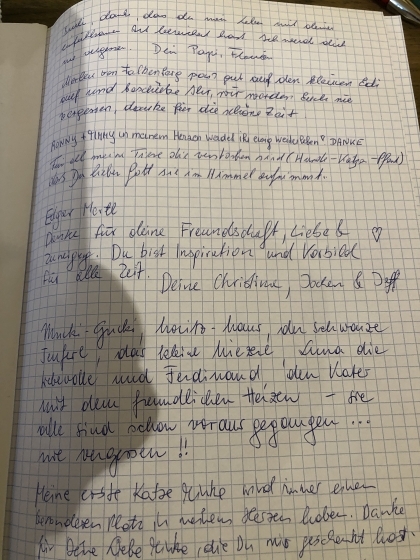 danke, das du mein Leben mit deiner
Art bereichert hast. Ich werde dich
nie vergessen. Dein Papi, Florian
von Falkenberg pass gut auf den kleinen Edi
auf und wir werden Euch nie
vergessen, danke für die schöne Zeit
RONNY + in meinem Herzen werdet ihr ewig weiterleben! DANKE
Für all meine Tiere die verstorben sind (Hunde-Katze-Pferd)
das Der liebe Gott sie im Himmel aufnimmt.
Edgar
Danke für deine Freundschaft, Liebe &
Zuneigung. Du bist Inspiration und Vorbild ♡
für alle Zeit.
Deine Christina, Jochen &
Moritz-Maus, der schwarze
Teufel, das kleine Miezele, Luna die
liebevolle und Ferdinand, den Kater
mit dem freundlichen Herzen - sie
alle sind schon vorausgegangen...
nie vergessen !!
Meine erste Katze wird immer einen
besonderen Platz in meinem Herzen haben. Danke
für Deine Liebe, die Du mir geschenkt hast